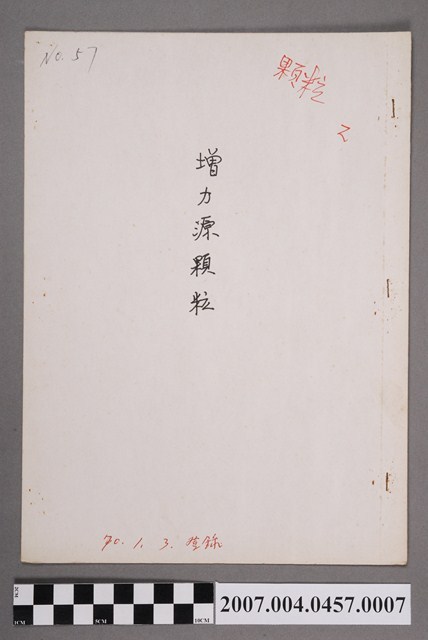 No. 57
顆粒
2
增力源顆粒
70. 1. 3. 登錄
2CM
1CM
5CM
10CM
2007.004.0457.0007